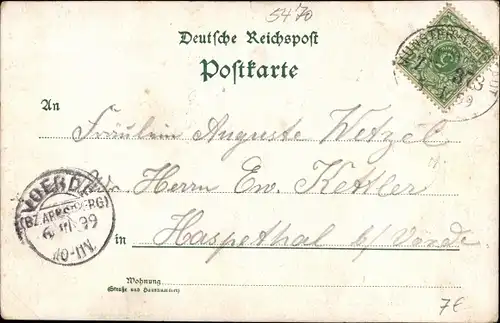 5470
Deutsche Reichspost
Postkarte
An
Fräulein Auguste Wetzel
Herrn Ew. Kettler
in Haspethal b/ Vörde
VOERDE
(BZ. ARNSBERG)
99
10-11N.
Wohnung
(Straße und Hausnummer)
7€